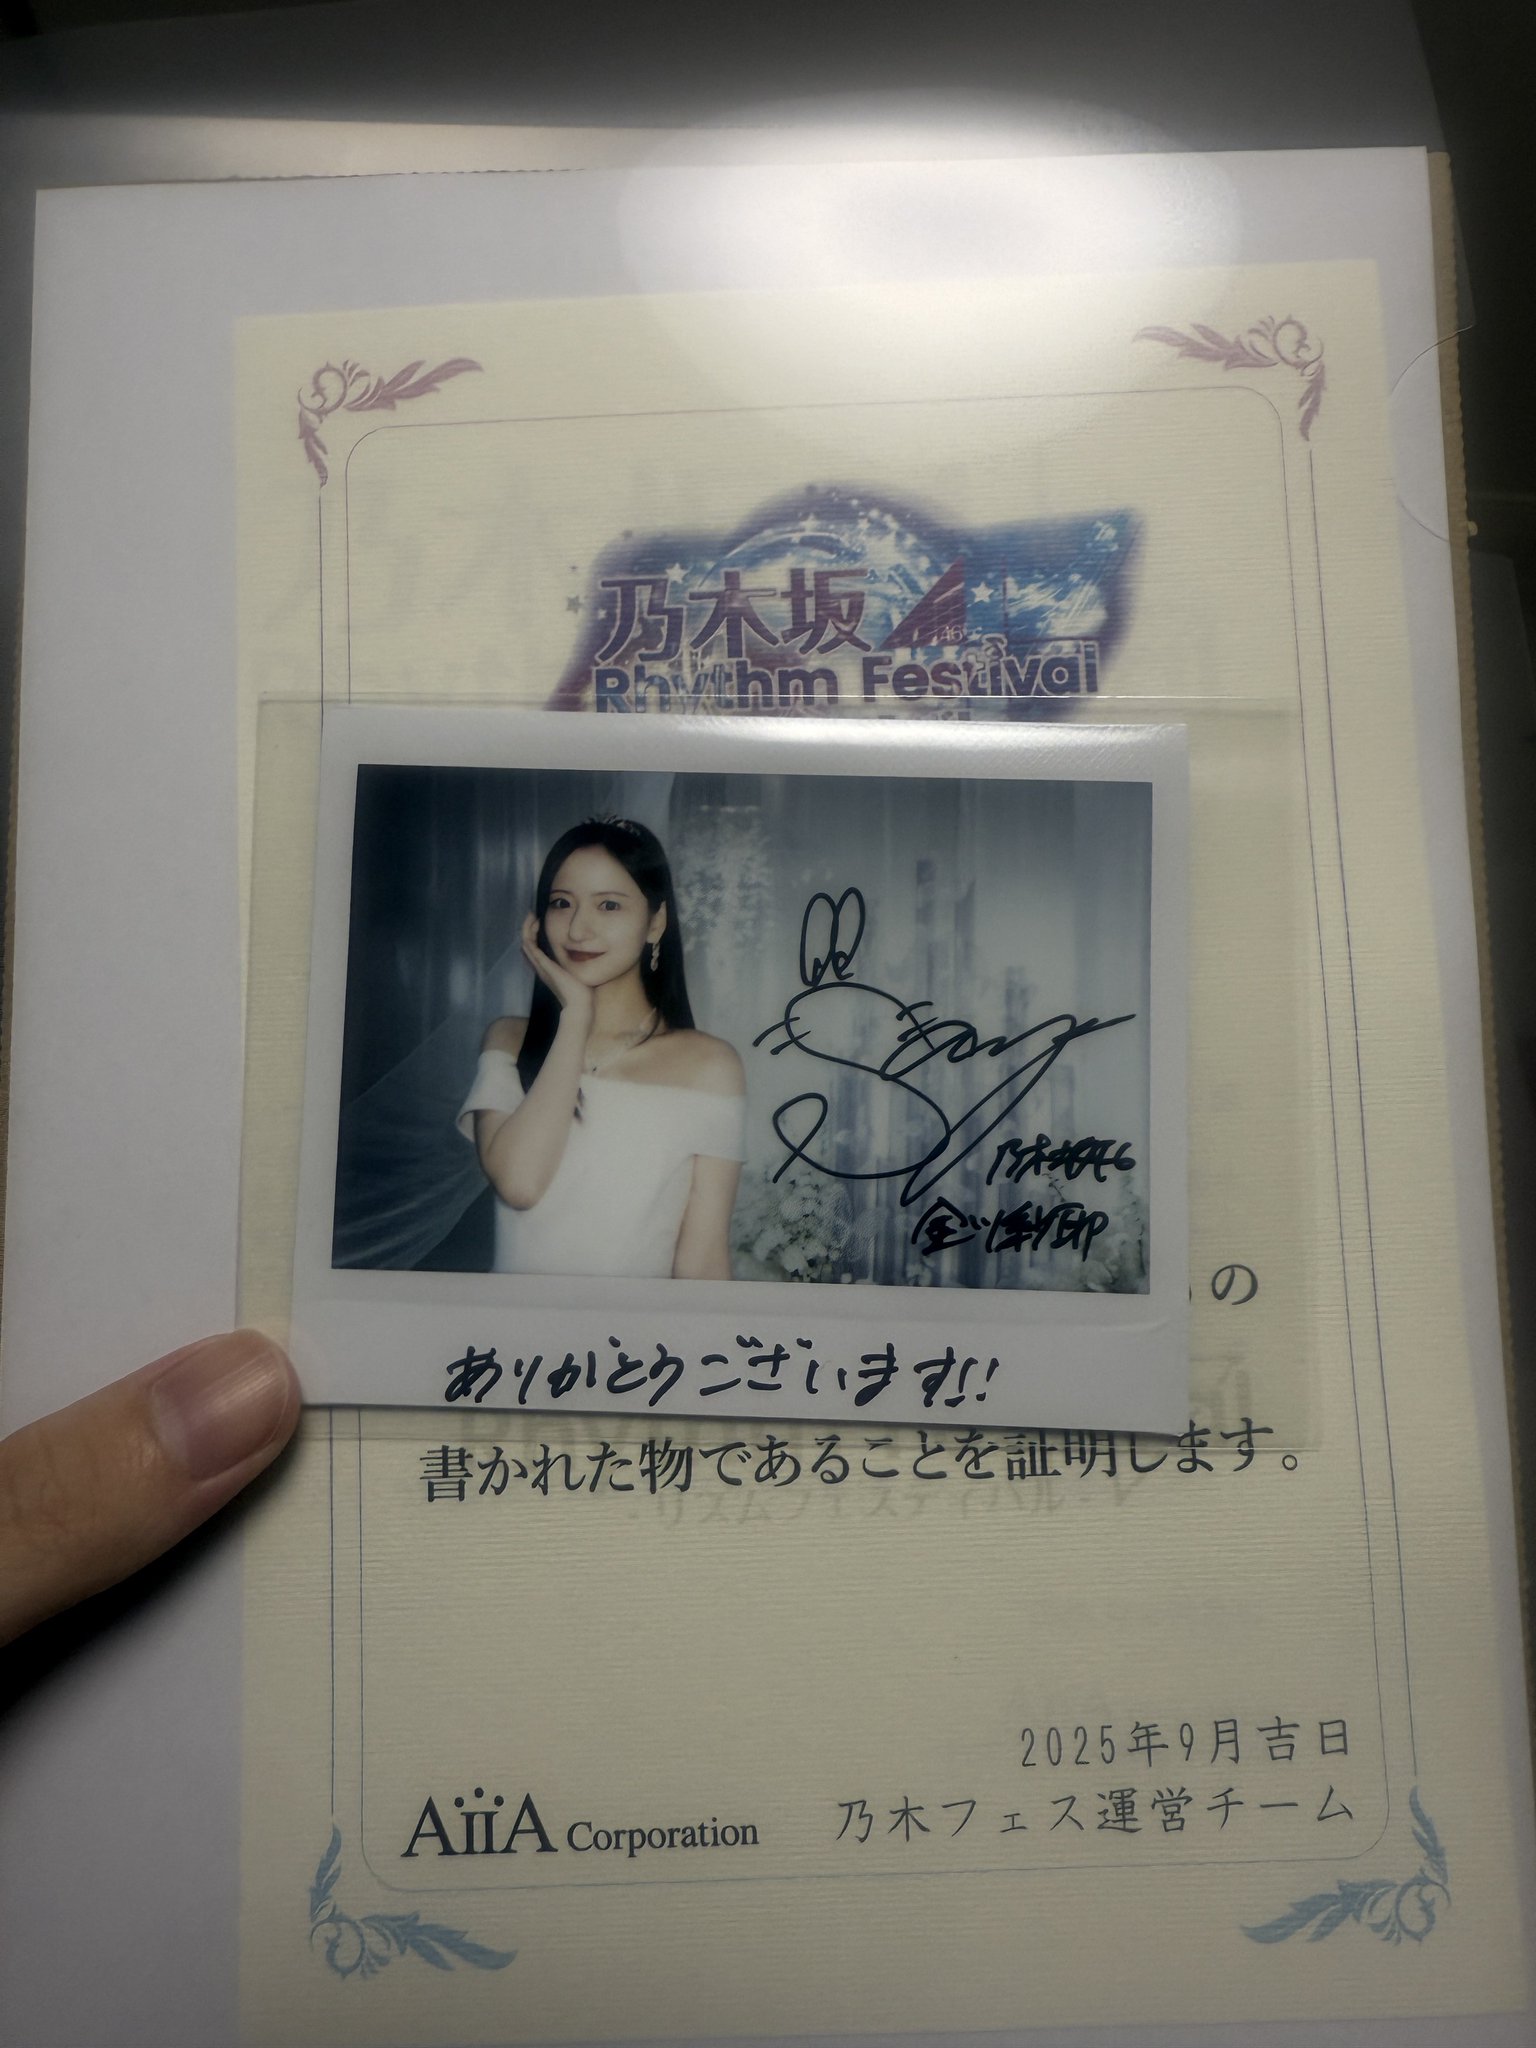 乃木坂46
Rhythm Festival
乃木坂46
金川紗耶
ありがとうございます!!
の
書かれた物であることを証明します。
2025年9月吉日
AiiA Corporation
乃木フェス運営チーム